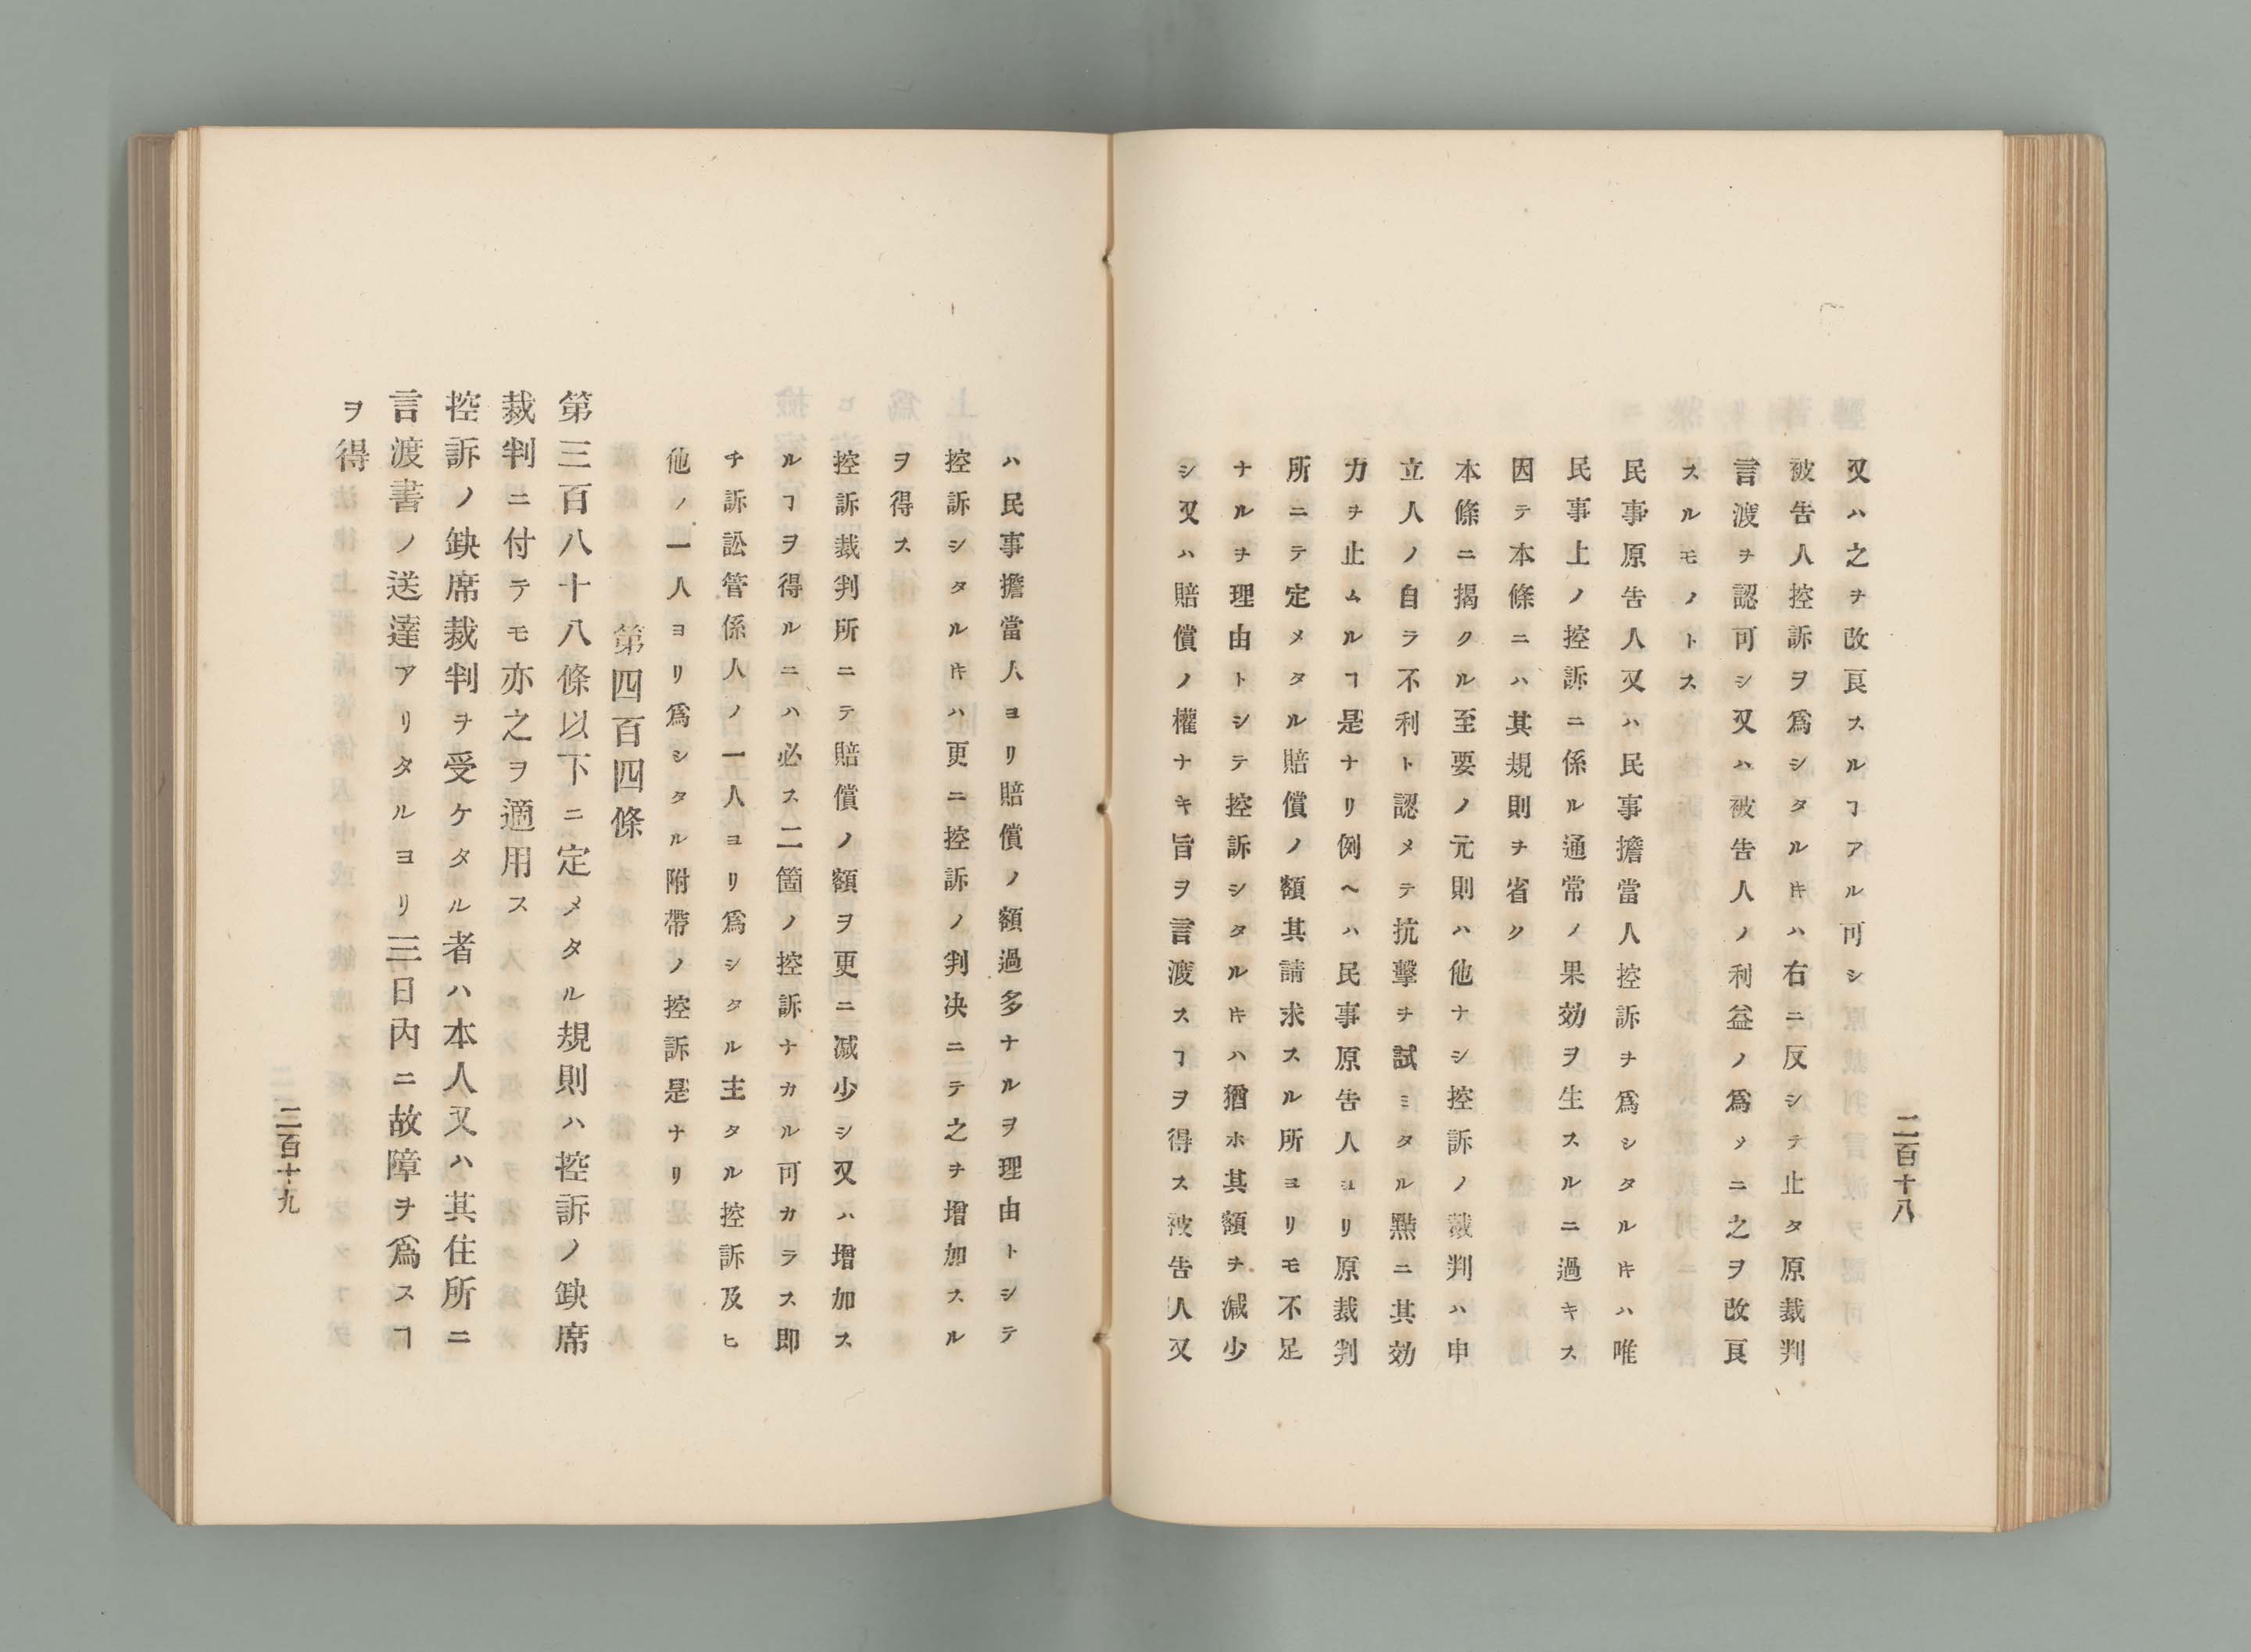 二百十八
又ハ之ヲ改良スルヿアル可シ
被告人控訴ヲ爲シタル𪜈ハ右ニ反シテ止タ原裁判
言渡ヲ認可シ又ハ被告人ノ利益ノ爲メニ之ヲ改良
スルモノトス
民事原告人又ハ民事擔當人控訴ヲ爲シタル𪜈ハ唯
民事上ノ控訴ニ係ル通常ノ果効ヲ生スルニ過キス
因テ本條ニハ其規則ヲ省ク
本條ニ揭クル至要ノ元則ハ他ナシ控訴ノ裁判ハ申
立人ノ自ラ不利ト認メテ抗擊ヲ試ミタル㸃ニ其効
力ヲ止ムルヿ是ナリ例ヘハ民事原告人ヨリ原裁判
所ニテ定メタル賠償ノ額其請求スル所ヨリモ不足
ナルヲ理由トシテ控訴シタル𪜈ハ猶ホ其額ヲ減少
シ又ハ賠償ノ權ナキ旨ヲ言渡スヿヲ得ス被告人又
ハ民事擔當人ヨリ賠償ノ額過多ナルヲ理由トシテ
控訴シタル𪜈ハ更ニ控訴ノ判决ニテ之ヲ增加スル
ヲ得ス
控訴裁判所ニテ賠償ノ額ヲ更ニ减少シ又ハ增加ス
ルヿヲ得ルニハ必ス二箇ノ控訴ナカル可カラス即
チ訴訟管係人ノ一人ヨリ爲シタル主タル控訴及ヒ
他ノ一人ヨリ爲シタル附帶ノ控訴是ナリ
第四百四條
第三百八十八條以下ニ定メタル規則ハ控訴ノ缺席
裁判ニ付テモ亦之ヲ適用ス
控訴ノ缺席裁判ヲ受ケタル者ハ本人又ハ其住所ニ
言渡書ノ送達アリタルヨリ三日內ニ故障ヲ爲スヿ
ヲ得
二百十九